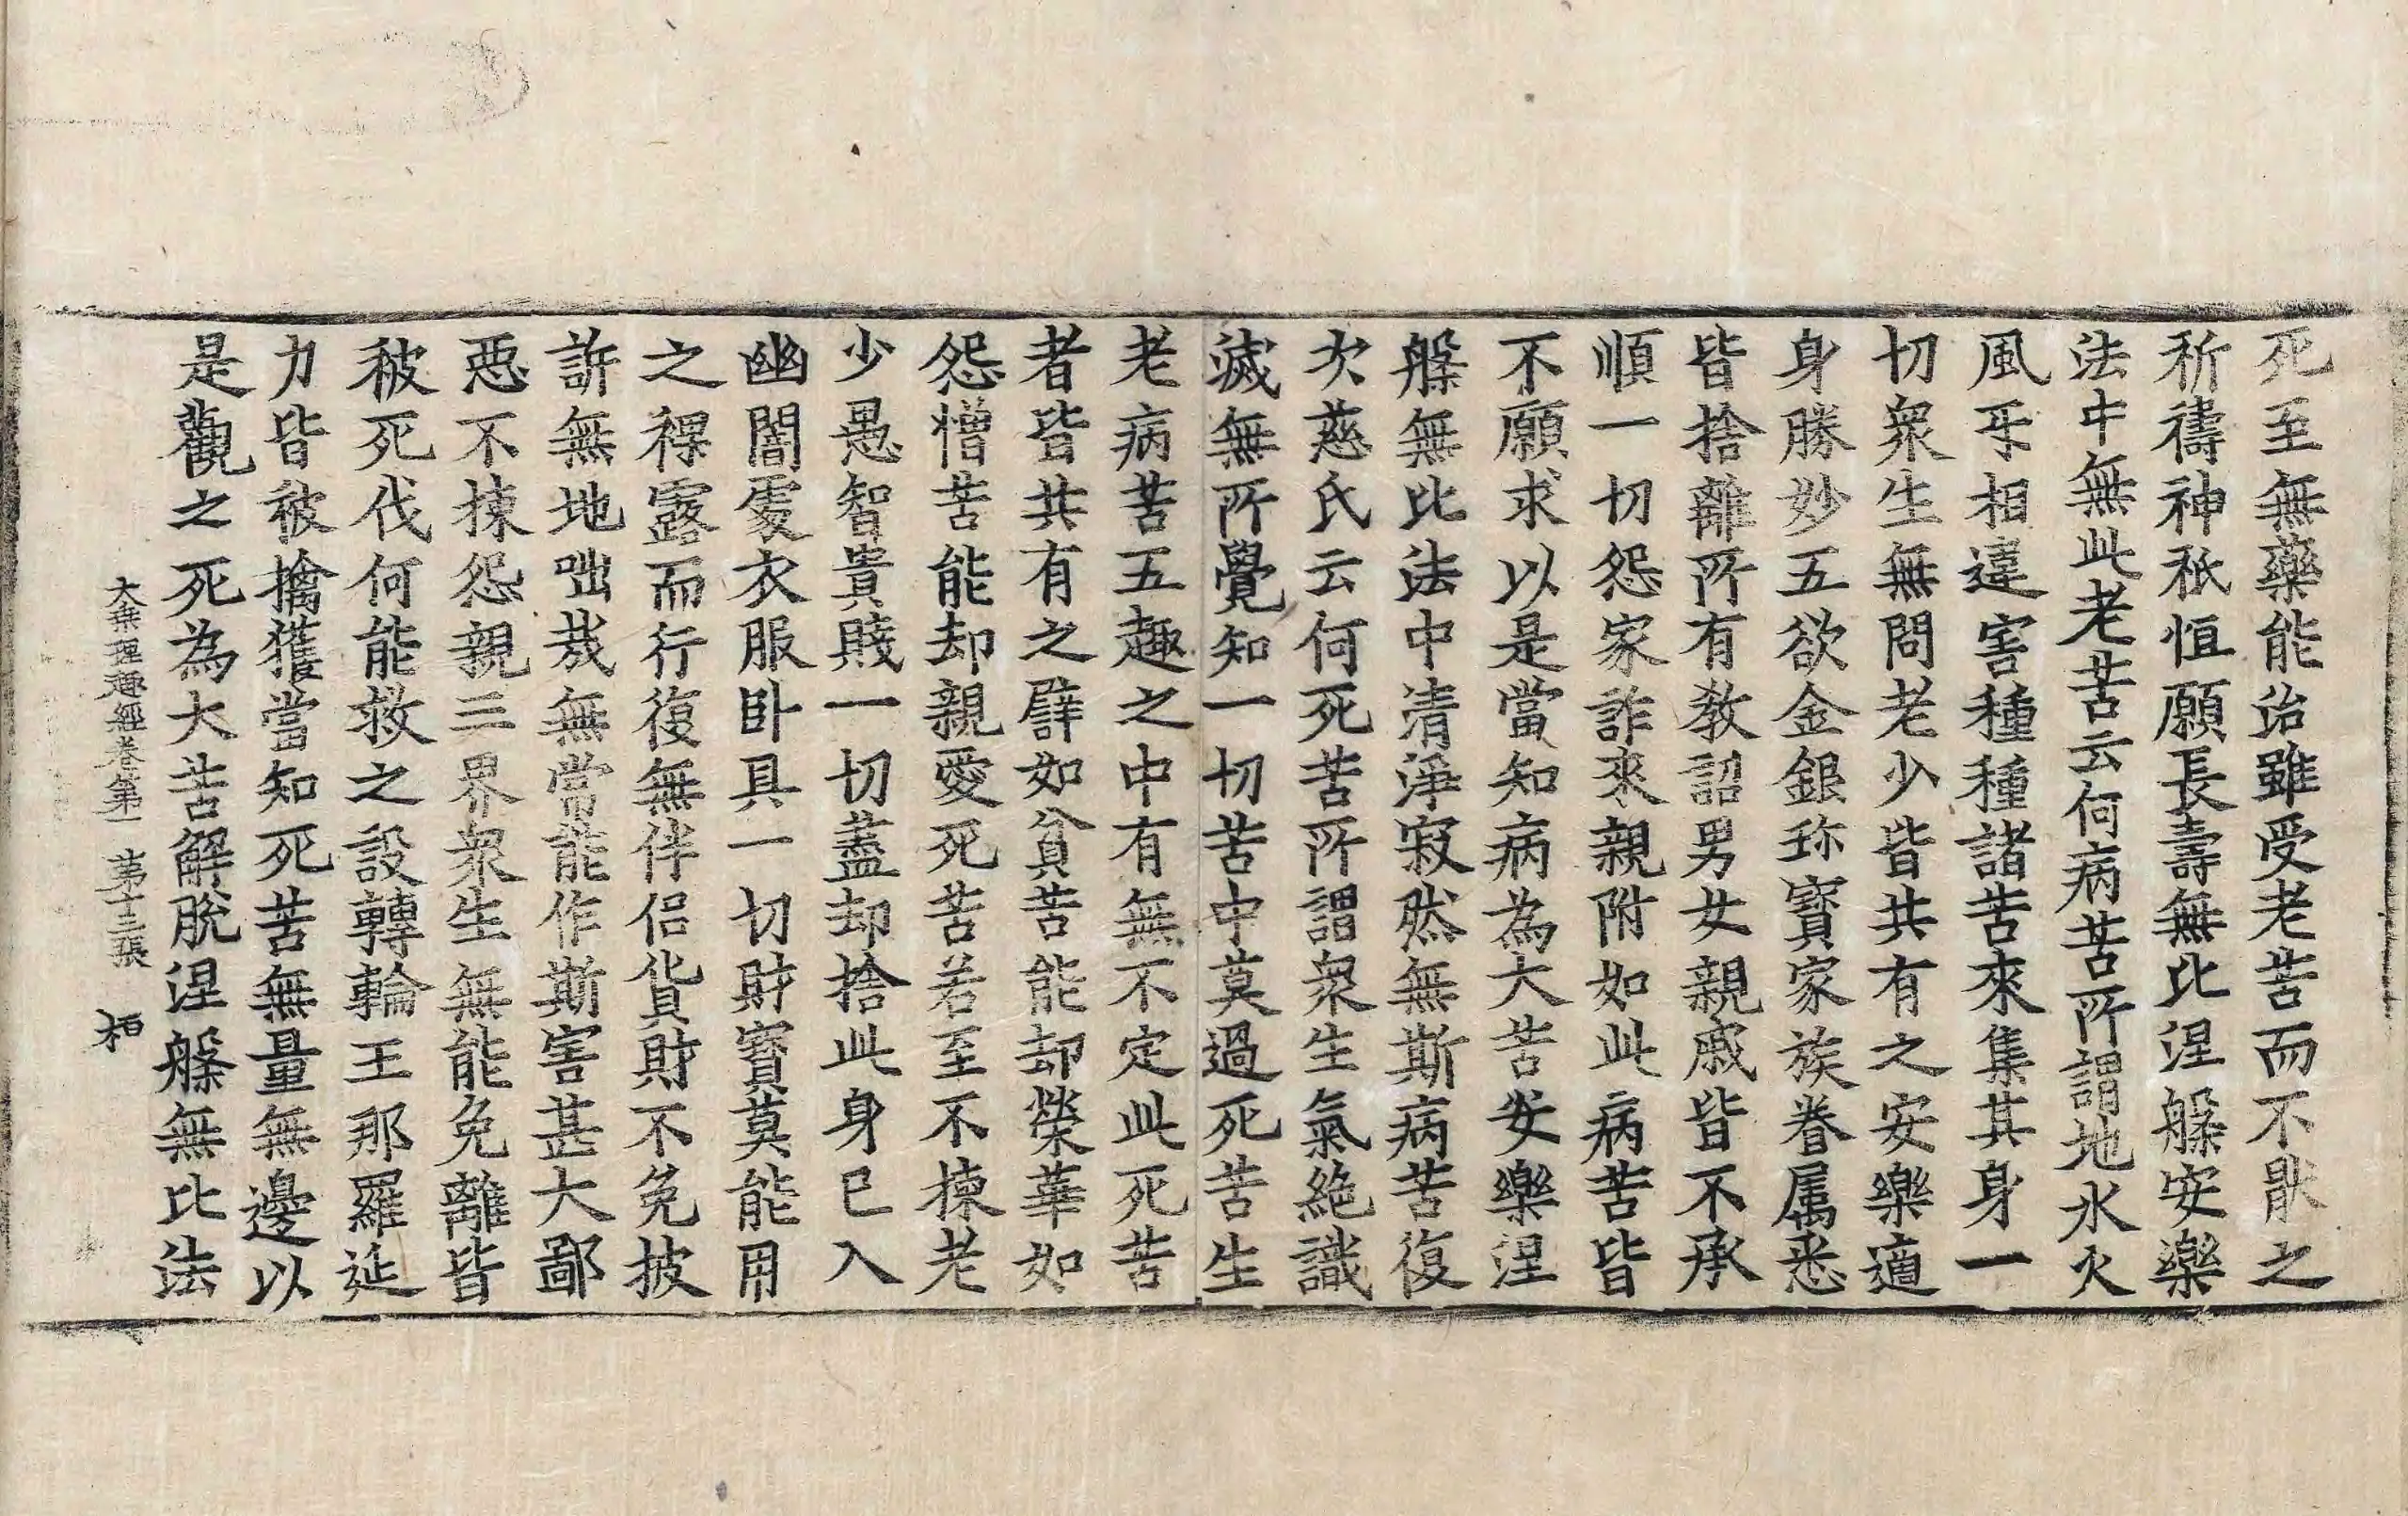 死至無藥能治雖受老苦而不猒之
祈禱神祇恒願長壽無比涅槃安樂
法中無此老苦云何病苦所謂地水火
風𠄔相違害種種諸苦來集其身一
切衆生無問老少皆共有之安樂適
身勝妙五欲金銀珎寶家族眷属悉
皆捨離所有教詔男女親戚皆不承
順一切怨家詐來親附如此病苦皆
不願求以是當知病為大苦安樂涅
槃無比法中清淨寂然無斯病苦復
次慈氏云何死苦所謂衆生氣絶識
滅無所覺知一切苦中莫過死苦生
老病苦五趣之中有無不定此死苦
者皆共有之譬如貧苦能却榮華如
怨憎苦能却親愛死苦若至不揀老
少愚智貴賤一切盡却捨此身已入
幽闇處衣服卧具一切財寶莫能用
之裸露而行復無伴侣貨財不免披
訴無地咄㦲無常能作斯害甚大鄙
惡不揀怨親三界衆生無能免離皆
被死伐何能救之設轉輪王那羅延
力皆被擒獲當知死苦無量無邊以
是觀之死為大苦解脫涅槃無比法
大乗理趣經卷第一　第十三張　栢